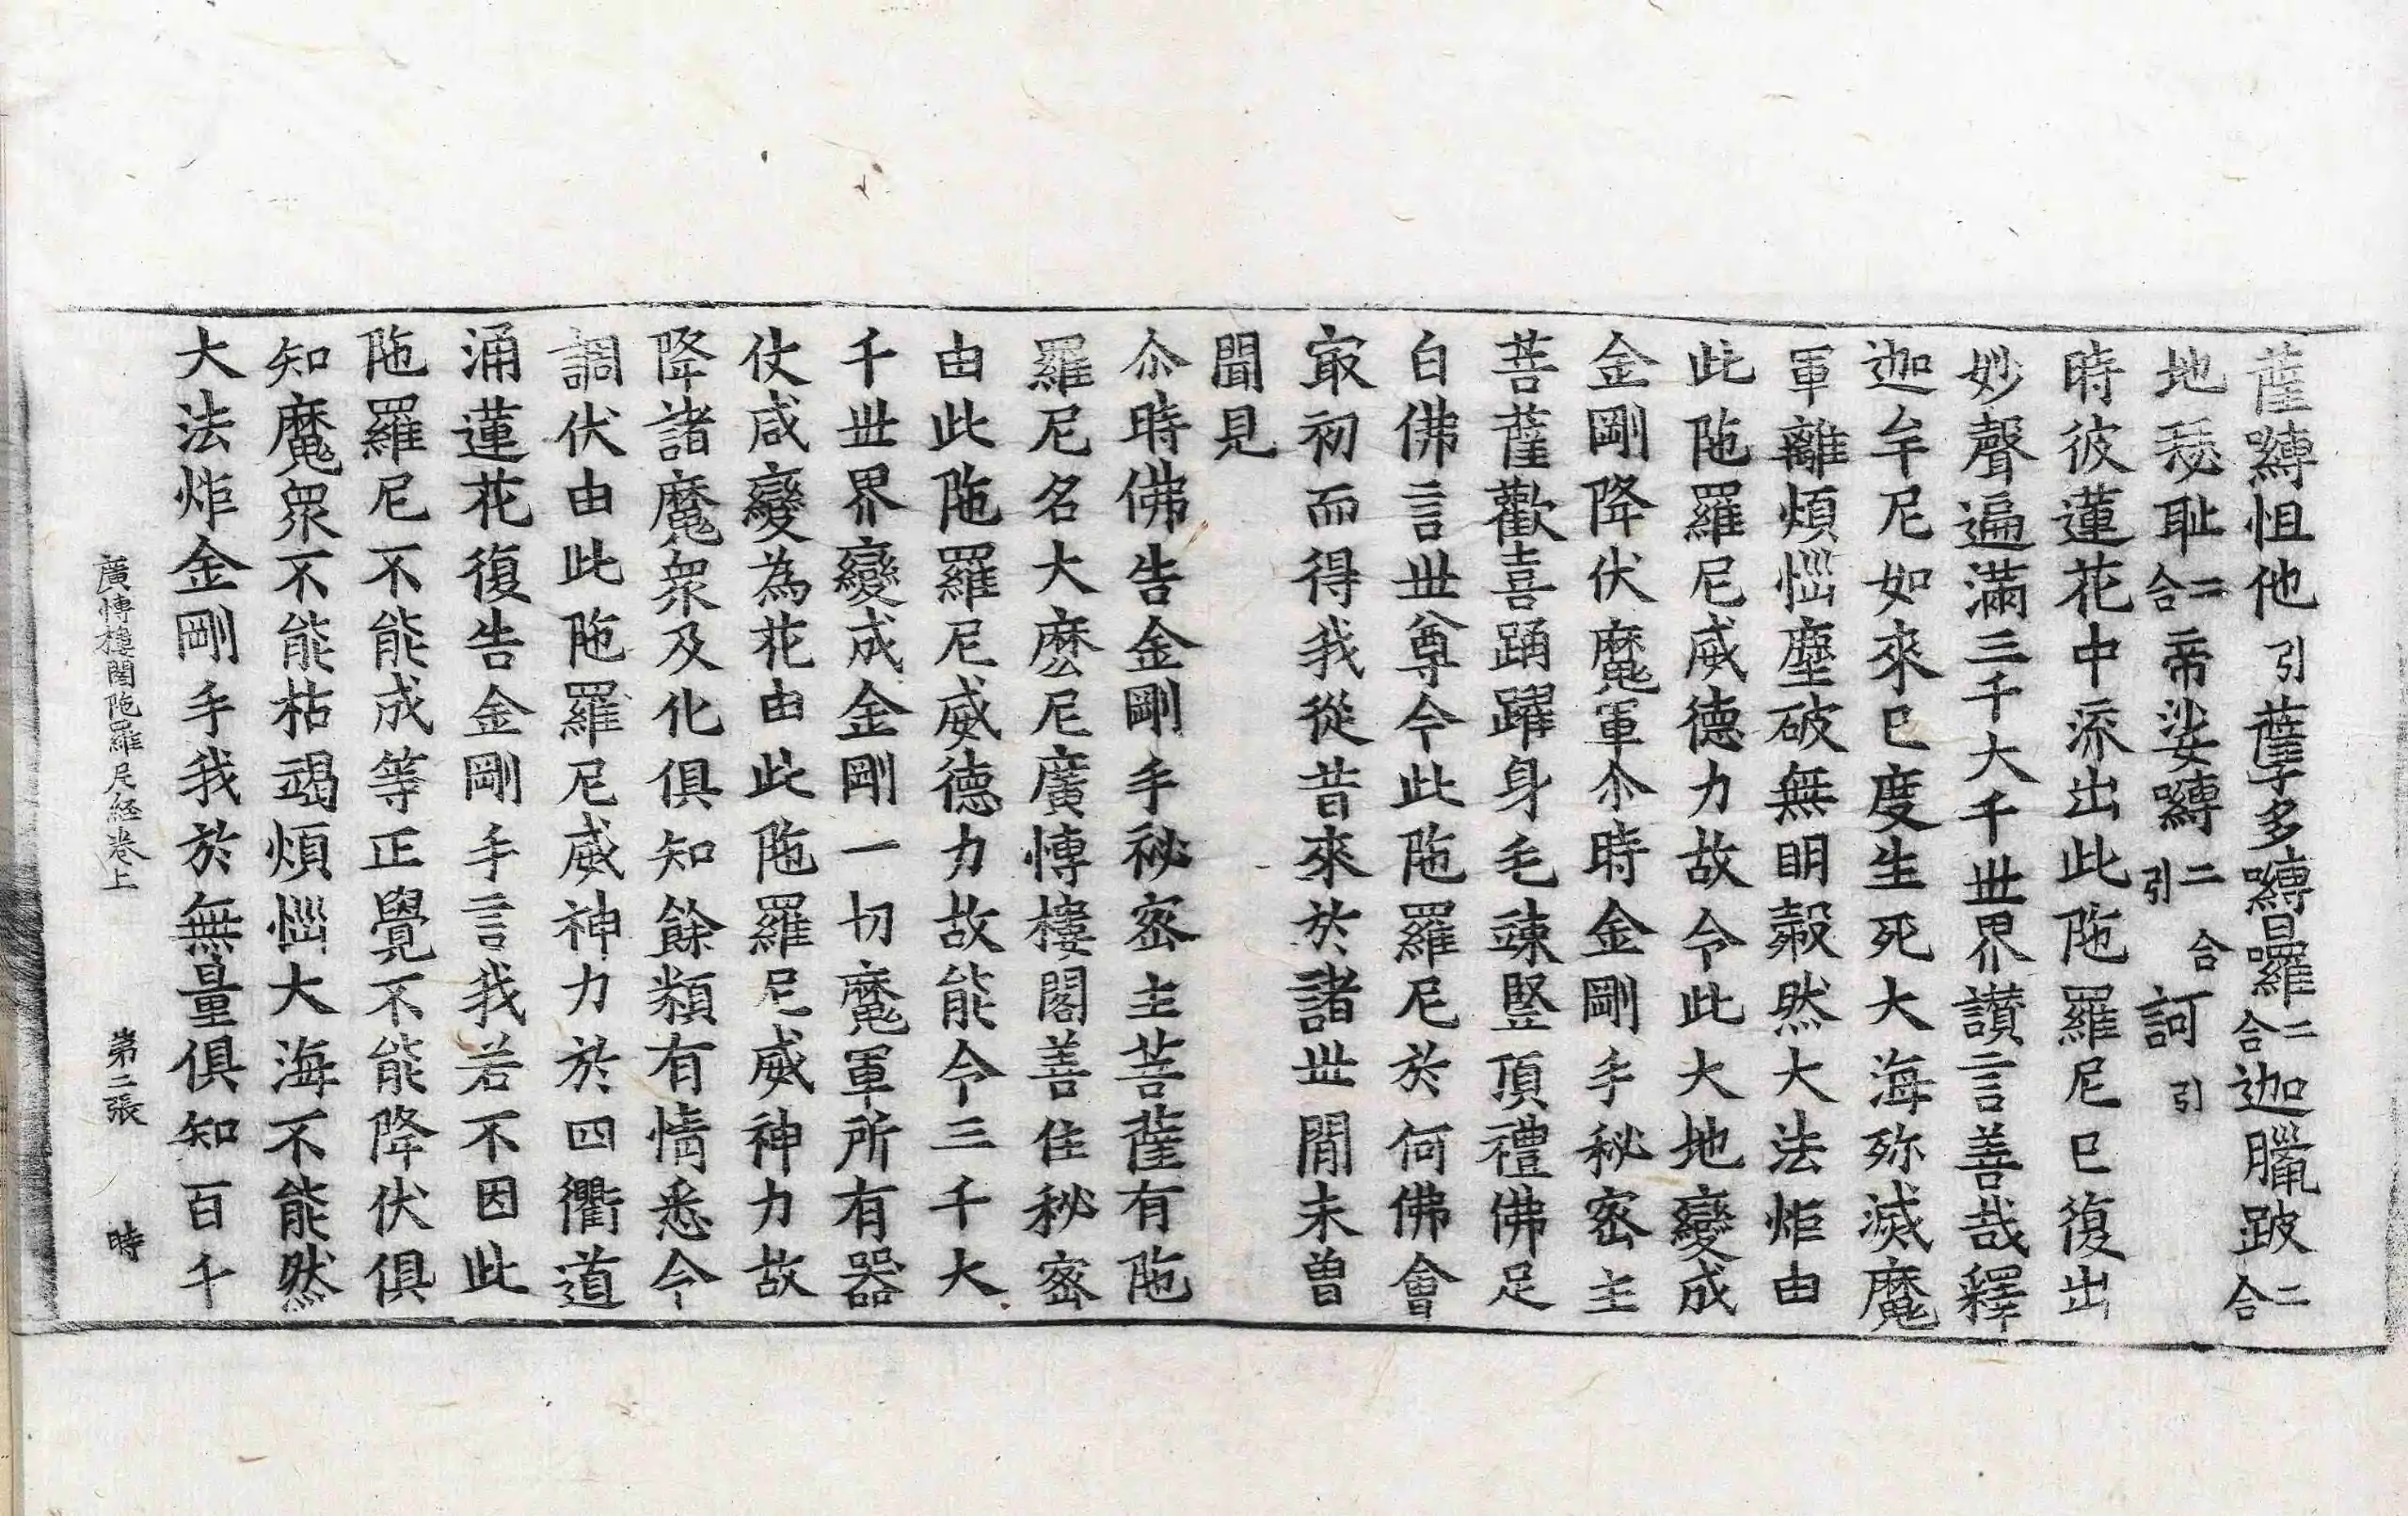 薩嚩怛他引蘖多嚩日囉二合迦臘跛二合
地瑟耻二合帝娑嚩二合引訶引
時彼蓮花中流出此陁羅尼已復出
妙聲遍滿三千大千世界讃言善哉釋
迦牟尼如來已度生死大海殄滅魔
軍離煩惱塵破無明㲉然大法炬由
此陁羅尼威德力故令此大地變成
金剛降伏魔軍尒時金剛手秘密主
菩薩歡喜踊躍身毛竦竪頂禮佛足
白佛言世尊今此陁羅尼於何佛會
㝡初而得我從昔來於諸世間未曾
聞見
尒時佛告金剛手祕密主菩薩有陁
羅尼名大麽尼廣愽樓閣善住秘密
由此陁羅尼威德力故能令三千大
千世界變成金剛一切魔軍所有器
仗咸變為花由此陁羅尼威神力故
降諸魔衆及化俱知餘類有情悉令
調伏由此陁羅尼威神力於四衢道
涌蓮花復告金剛手言我若不因此
陁羅尼不能成等正覺不能降伏俱
知魔衆不能枯竭煩惱大海不能然
大法炬金剛手我於無量俱知百千
廣愽樓閣陁羅尼經卷上 第二張 時